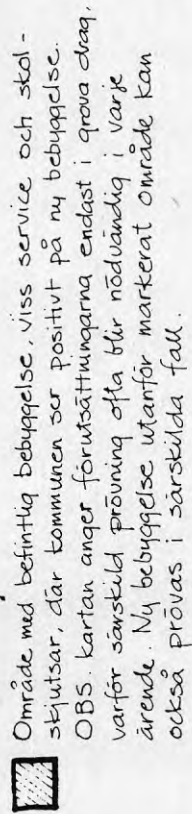 Område med befintlig bebyggelse, viss service och skol-
skjutsar, där kommunen ser positivt på ny bebyggelse.
OBS. kartan anger förutsättningarna endast i grova drag,
varför särskild prövning ofta blir nödvändig i varje
ärende. Ny bebyggelse utanför markerat område kan
också prövas i särskilda fall.